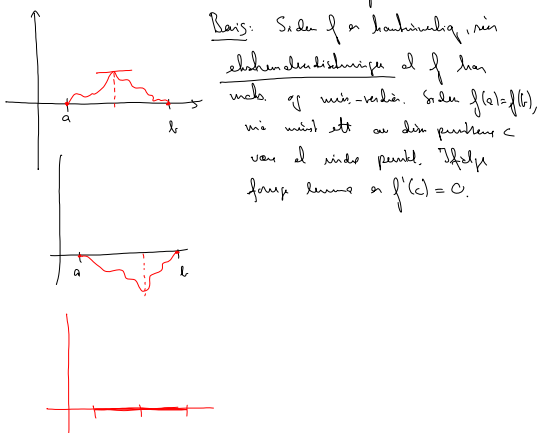 Bevis: Siden f er kontinuerlig, sier
ekstremalverdisetningen at f har
maks. og min.-verdier. Siden f(a)=f(b),
må minst ett av disse punktene c
være et indre punkt. Ifølge
forrige lemma er f'(c) = 0.
a
b
a
b